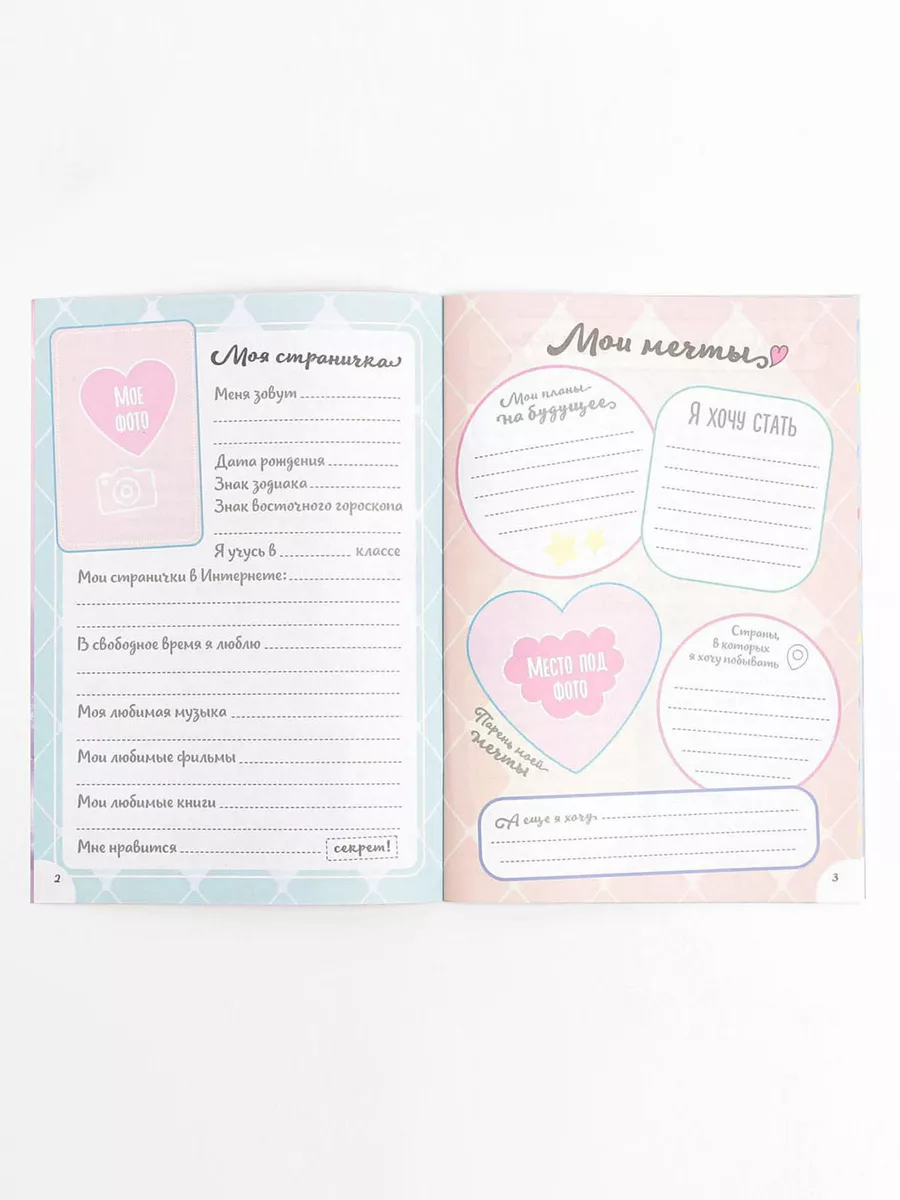 Мое
фото
Моя страничка
Меня зовут
Дата рождения
Знак зодиака
Знак восточного гороскопа
Я учусь в классе
Мои странички в Интернете:
В свободное время я люблю
Моя любимая музыка
Мои любимые фильмы
Мои любимые книги
Мне нравится секрет!
2
Мои мечты
Мои планы
на будущее
Я хочу стать
Место под
фото
Парень моей
мечты
Страны,
в которых
я хочу побывать
А еще я хочу
3